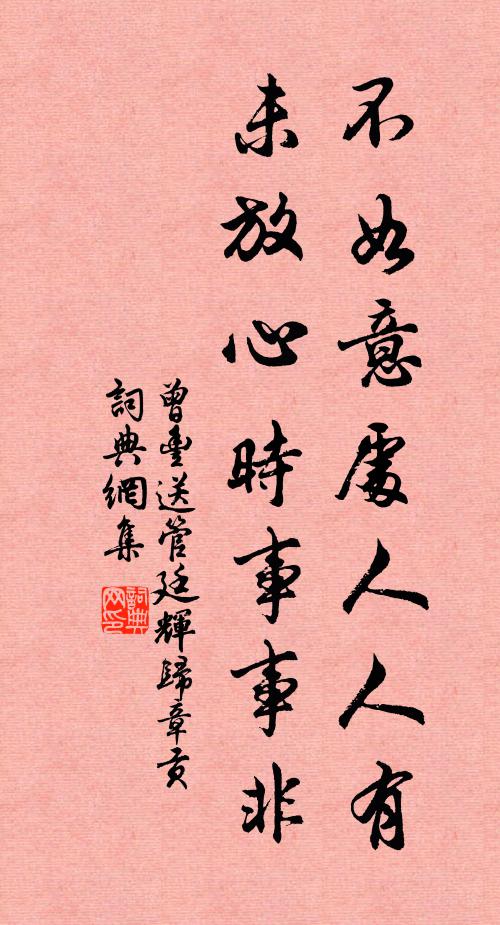 不如意處人人有
未放心時事事非
曾豐送管廷輝歸章貢
詞典網集
詞典网印